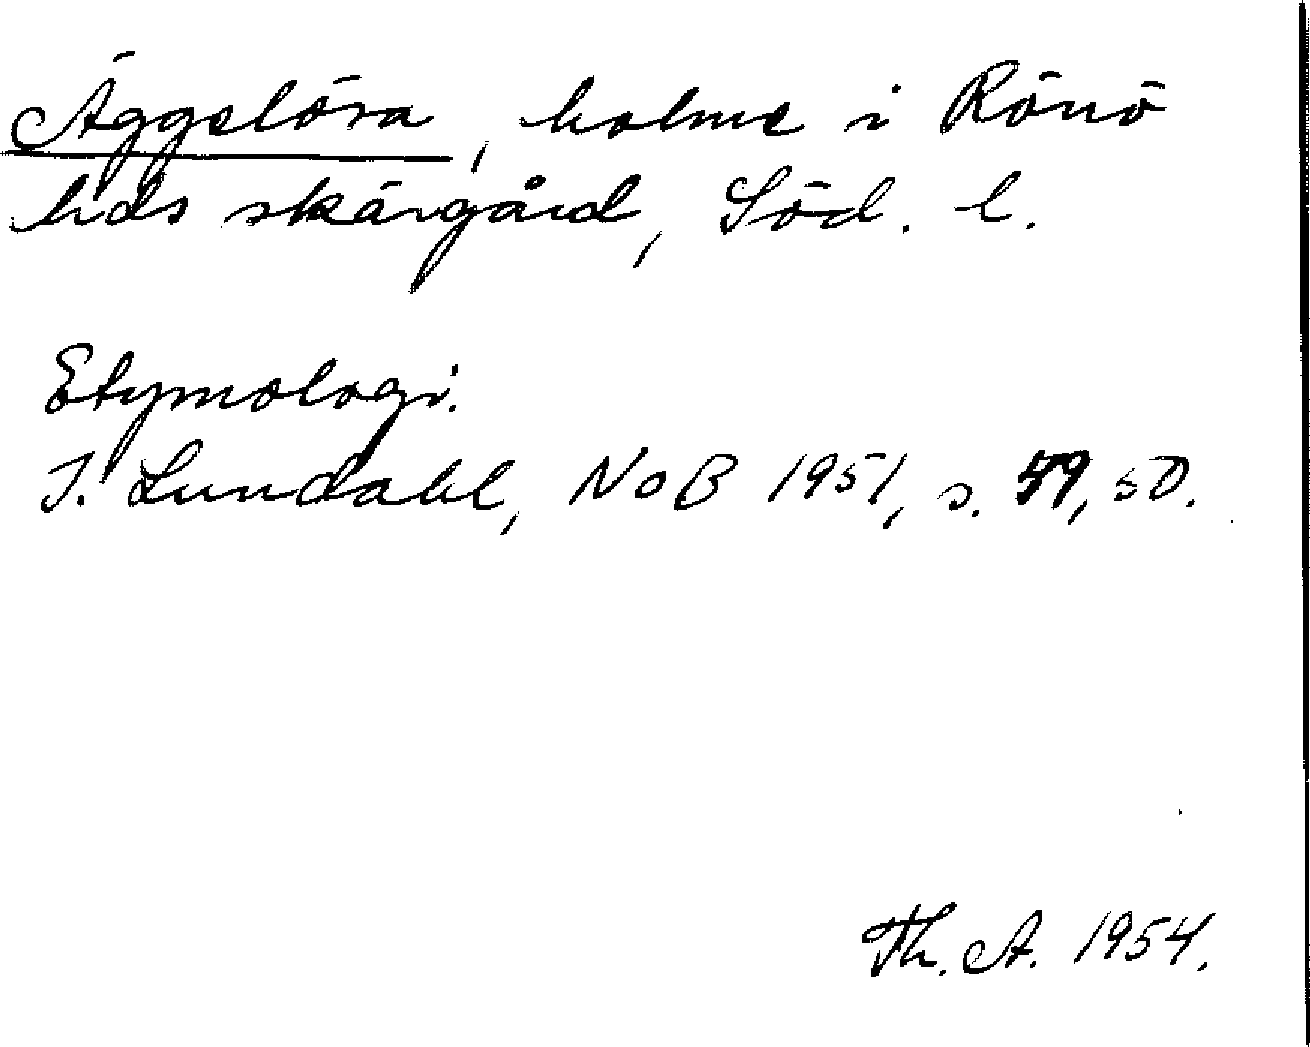 Äggelöra, holme i Rönö
hds skärgård, Söd. l.
Etymologi.
I. Lundahl, NoB 1951, s. 49, 50.
Th. A. 1954.